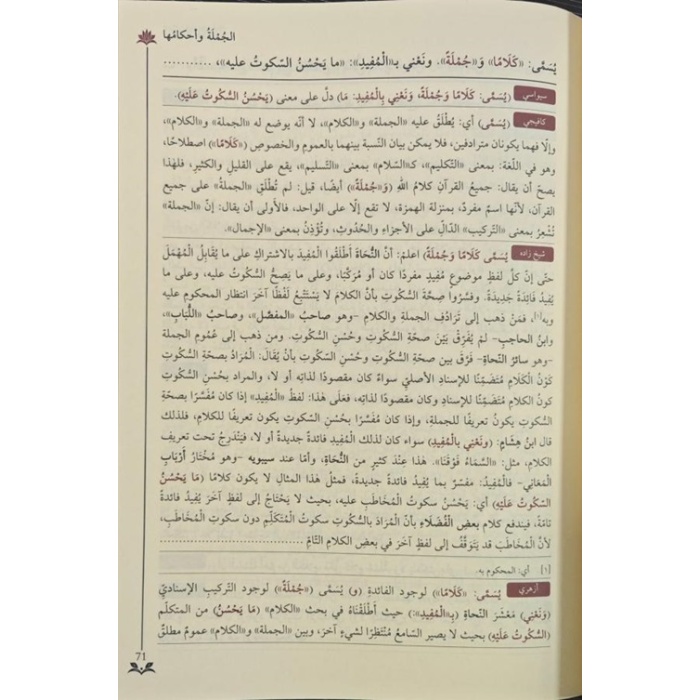 الجُمْلَةُ وأحكامُها
يُسَمَّى: «كَلَامًا» وَ«جُمْلَةً». ونَعْني بـ«الْمُفِيدِ»: «ما يَحْسُنُ السّكوتُ عليه»، ...........
سيواسي (يُسَمَّى: كَلَامًا وَجُمْلَةً، وَنَعْنِي بِالْمُفِيدِ: مَا) دلَّ على معنى (يَحْسُنُ السُّكُوتُ عَلَيْهِ).
كافيجي (يُسَمَّى) أي: يُطْلَقُ عليه «الجملة» و«الكلام»، لا أنّه يوضع له «الجملة» و«الكلام»،
وإلّا فهما يكونان مترادفين، فلا يمكن بيان النّسبة بينهما بالعموم والخصوصِ (كَلَامًا) اصطلاحًا،
وهو في اللّغة: بمعنى «التّكليم»، كـ«السّلام» بمعنى «التّسليم»، يقع على القليل والكثير، فلهذا
يصحّ أن يقال: جميعُ القرآنِ كلامُ اللهِ (وَ«جُمْلَةً») أيضًا، قيل: لم تُطْلَقِ «الجملة» على جميع
القرآن، لأنّها اسم مفردٌ، بمنزلة الهمزة، لا تقع إلّا على الواحد، فالأَولى أن يقال: إنّ «الجملة»
تُشْعِرُ بمعنى «التّركيب» الدّالّ على الأجزاءِ والحُدوثِ، وتُؤْذِنُ بمعنى «الإجمال».
شيخ زاده (يُسَمَّى كَلَامًا وَجُمْلَةً) اعلمْ: أنَّ النُّحَاةَ أَطْلَقُوا الْمُفِيدَ بالاشتراكِ على مَا يُقَابِلُ الْمُهْمَلَ
حتّى إنّ كلَّ لفظٍ موضوعٍ مُفِيدٍ مفردًا كان أو مُرَكَّبًا، وعلى ما يَصِحُّ السُّكُوتُ عليه، وعلى ما
يُفِيدُ فَائِدَةً جَدِيدَةً. وفسّرُوا صِحَّةَ السُّكُوتِ بأنّ الكلامَ لا يَسْتَتْبِعُ لَفْظًا آخَرَ انتظارَ المحكوم عليه
وبه[١]، فمَنْ ذهب إلى تَرَادُفِ الجملةِ والكلامِ -وهو صاحبُ «المفصّل»، وصاحبُ «اللُّبَابِ»،
وابنُ الحاجبِ- لم يُفَرِّقْ بَيْنَ صحّةِ السّكوتِ وحُسْنِ السّكوتِ. ومن ذهب إلى عُمُومِ الجملةِ
-وهو سائرُ النُّحاةِ- فَرَّقَ بين صحّةِ السُّكوتِ وحُسْنِ السّكوتِ بأن يُقَالَ: الْمُرَادُ بصحّةِ السّكوتِ
كَوْنُ الْكَلَامِ مُتَضَمِّنًا للإسناد الأصليّ سواءٌ كان مقصودًا لذاته أو لا، والمراد بحُسْنِ السّكوتِ
كونُ الكلامِ مُتَضَمِّنًا للإسناد وكان مقصودًا لذاته، فعلَى هَذا: لفظُ «الْمُفِيدِ» إذا كان مُفَسَّرًا بصحّةِ
السّكوتِ يكونُ تعريفًا للجملةِ، وإذا كان مُفَسَّرًا بحُسْنِ السّكوتِ يكون تعريفًا للكلام، فلذلك
قال ابنُ هشامٍ: (ونَعْنِي بالْمُفِيدِ) سواء كان لذلك الْمُفِيدِ فائدةٌ جديدةٌ أو لا، فيَنْدَرِجُ تحت تعريفِ
الكلام، مثل: «السَّمَاءُ فَوْقَنَا». هذا عِنْدَ كثيرٍ من النُّحَاةِ، وأمّا عند سيبويه -وهو مُخْتَارُ أَرْبَابِ
الْمَعَانِي- فالْمُفِيدُ: مفسَّرٌ بما يُفِيدُ فائدةً جديدةً، فمثلُ هذا المثالِ لا يكون كلامًا (مَا يَحْسُنُ
السُّكُوتُ عَلَيْهِ) أي: يَحْسُنُ سكوتُ المُخَاطَبِ عليه، بحيث لا يَحْتَاجُ إلى لفظٍ آخَرَ يُفِيدُ فائدةً
تامّةً، فيندفع كلام بعضِ الْفُضَلَاءِ بأنّ الْمُرَادَ بالسُّكُوتِ سكوتُ الْمُتَكَلِّمِ دون سكوتِ الْمُخَاطَبِ،
لأنّ الْمُخَاطَبَ قد يَتَوَقَّفُ إلى لفظٍ آخَرَ في بعضِ الكلامِ التّامِّ ...........
[١] أي: المحكوم به.
أزهري يُسَمَّى: «كَلَامًا») لوجود الفائدةِ (و) يُسَمَّى («جُمْلَةً») لوجود التّركيبِ الإسناديّ
(وَنَعْنِي) مَعْشَرَ النّحاةِ (بـ«الْمُفِيدِ»:) حيث أَطْلَقْنَاهُ في بحث «الكلام» (مَا يَحْسُنُ) من المتكلّم
(السُّكُوتُ عَلَيْهِ) بحيث لا يصير السّامعُ مُنْتَظِرًا لشيءٍ آخرَ، وبين «الجملة» و«الكلام» عمومٌ مطلقٌ
71